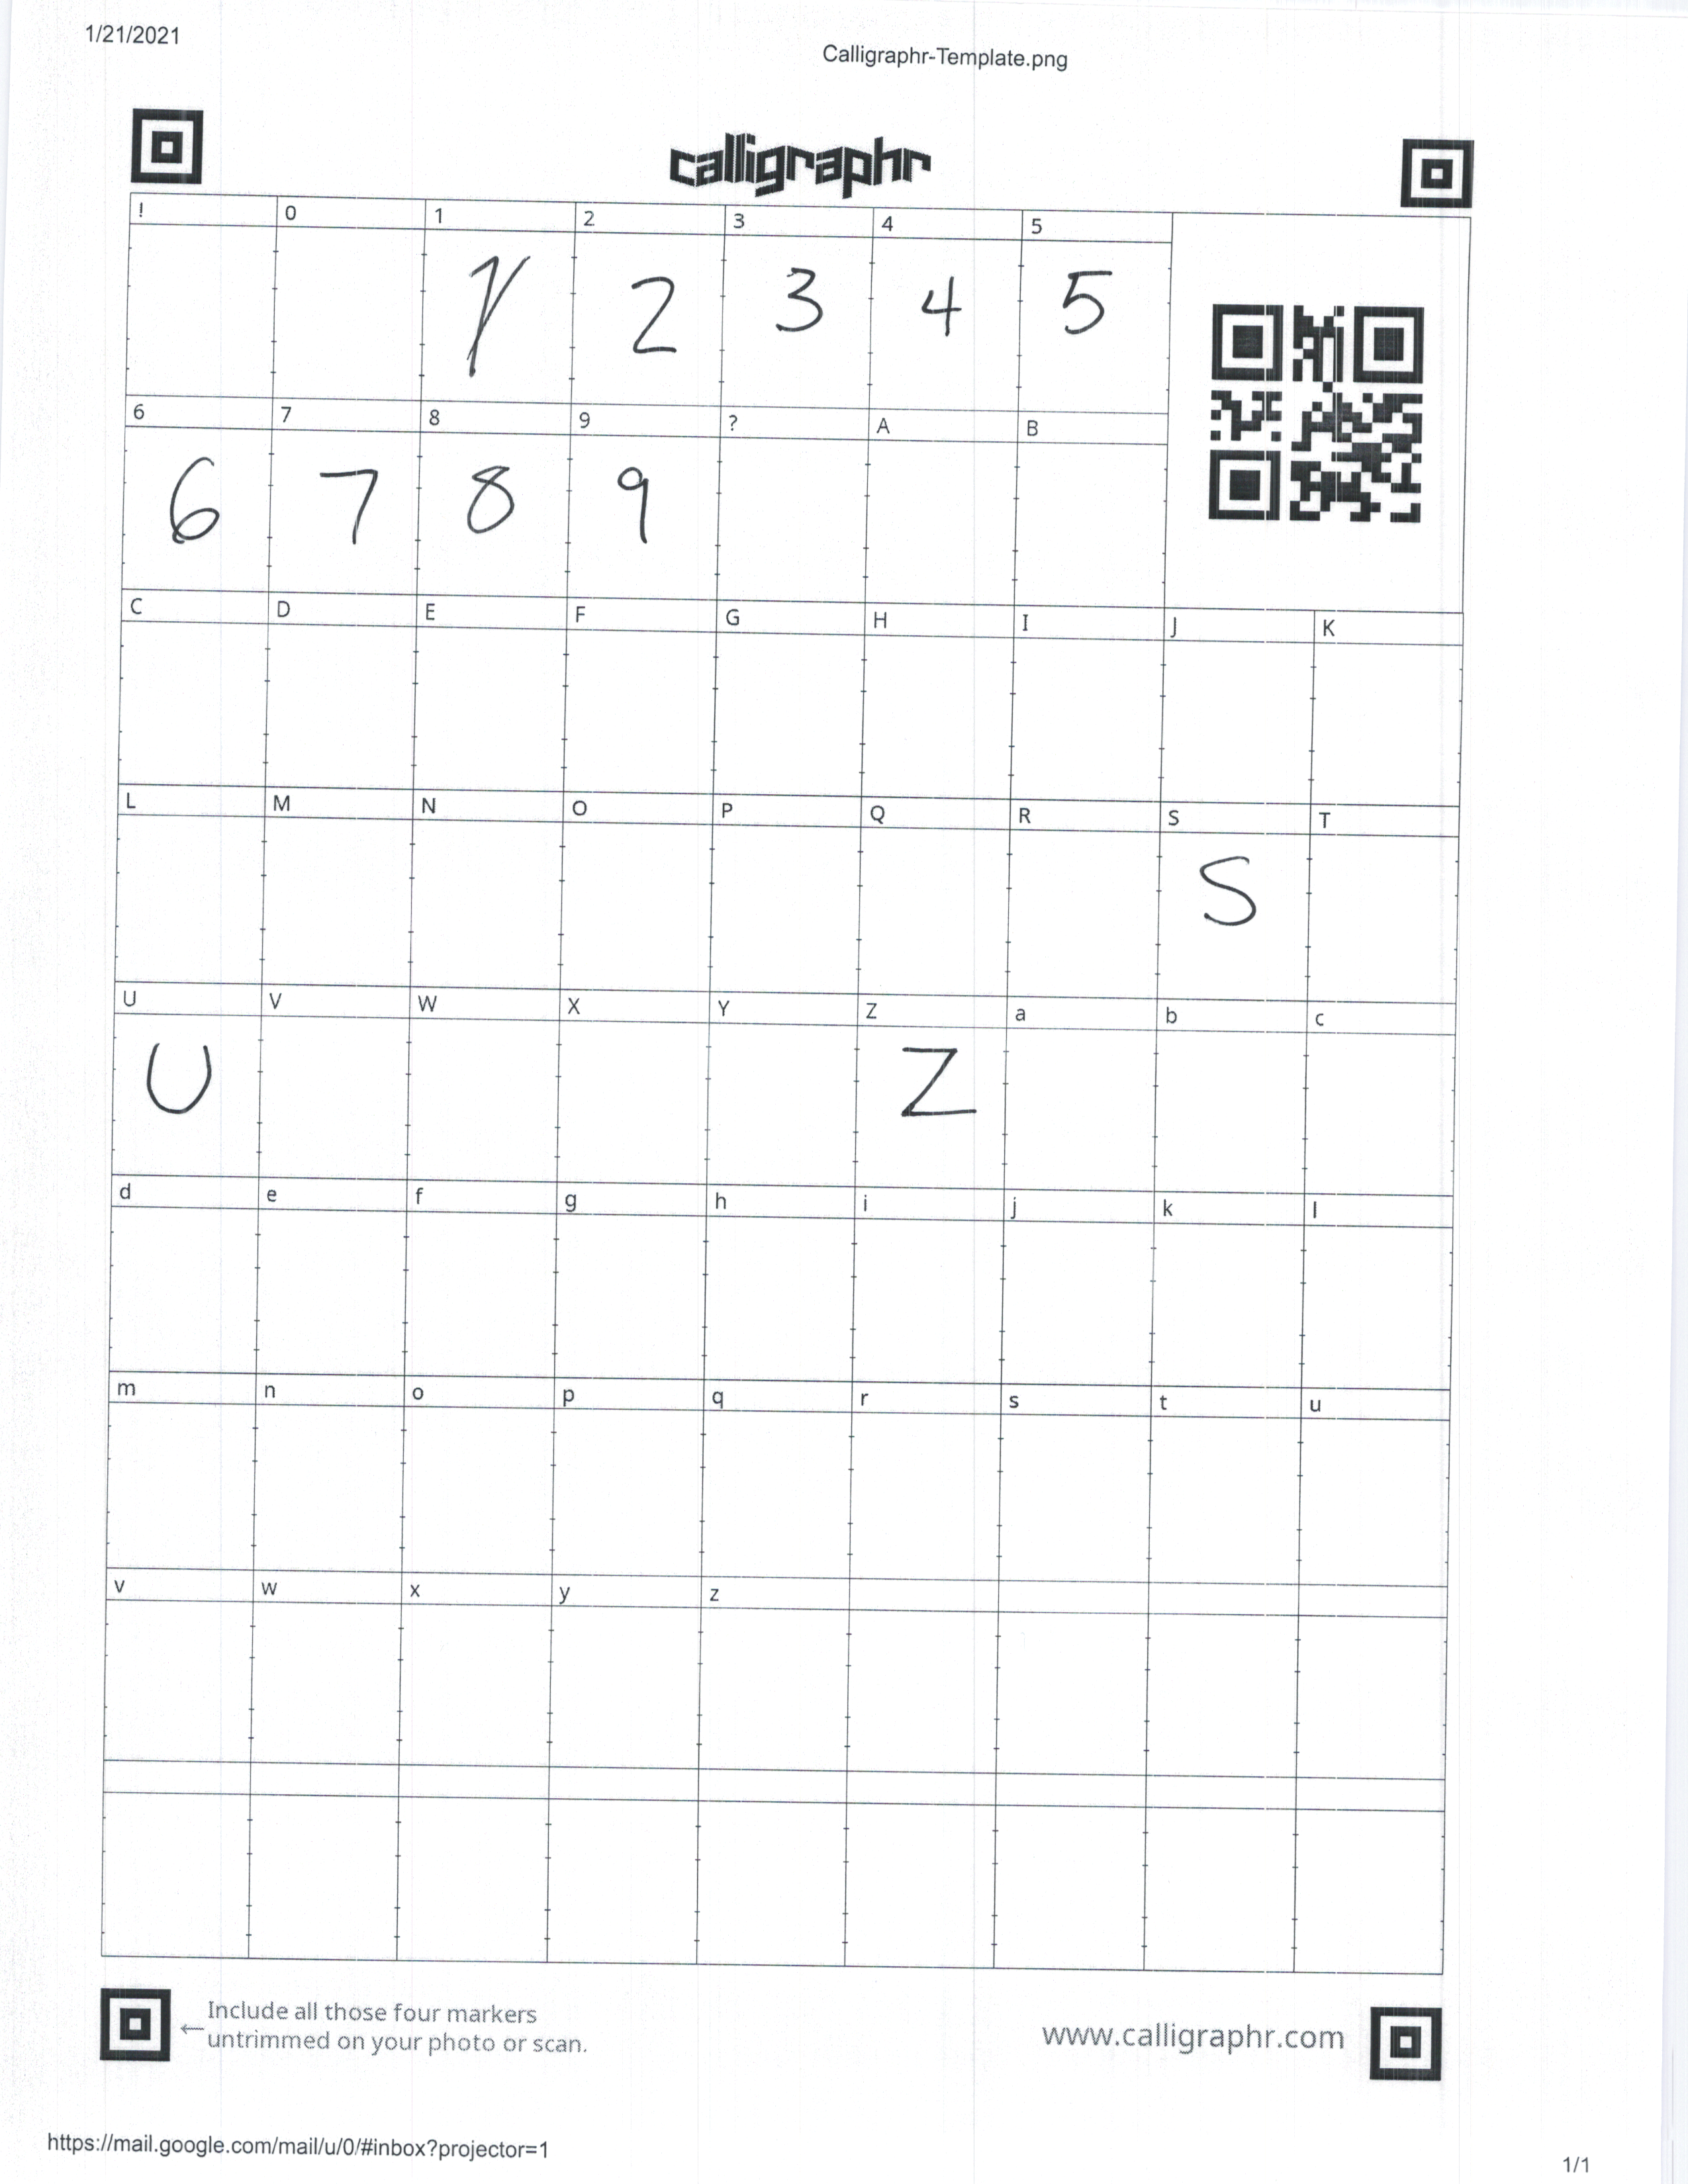 1/21/2021
Calligraphr-Template.png
calligraphr
! 0 1 2 3 4 5
2 3 4 5
6 7 8 9 ? A B
6 7 8 9
C D E F G H I J K
L M N O P Q R S T
S
U V W X Y Z a b c
U Z
d e f g h i j k l
m n o p q r s t u
v w x y z
Include all those four markers
← untrimmed on your photo or scan.
www.calligraphr.com
https://mail.google.com/mail/u/0/#inbox?projector=1
1/1